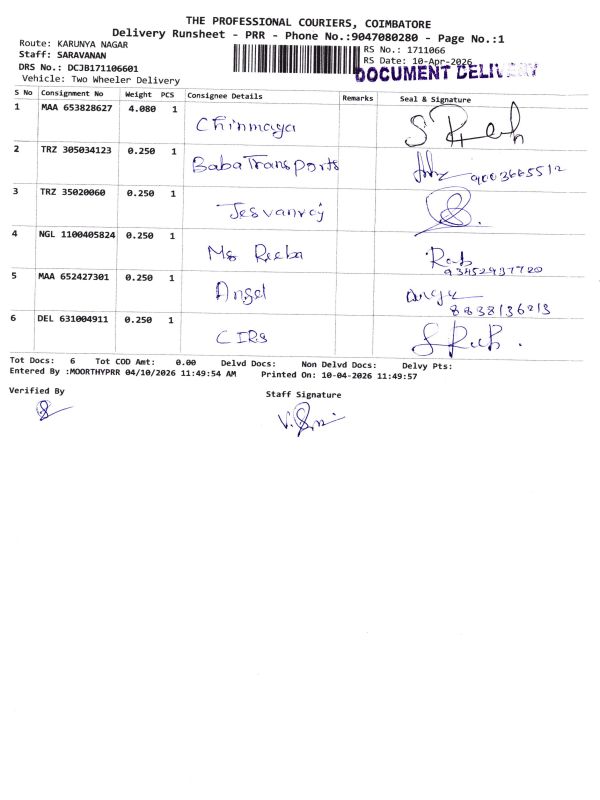 THE PROFESSIONAL COURIERS, COIMBATORE
Delivery Runsheet - PRR - Phone No.:9047080280 - Page No.:1
Route: KARUNYA NAGAR
RS No.: 1711066
Staff: SARAVANAN
RS Date: 10-Apr-2026
DRS No.: DCJB171106601
DOCUMENT DELIVERY
Vehicle: Two Wheeler Delivery
S No Consignment No Weight PCS Consignee Details Remarks Seal & Signature
1 MAA 653828627 4.080 1 Chinmaya
2 TRZ 305034123 0.250 1 Baba Transports
3 TRZ 35020060 0.250 1 Jesvanraj
4 NGL 1100405824 0.250 1 Ms Reeba
5 MAA 652427301 0.250 1 Angel
8838136213
6 DEL 631004911 0.250 1 CIRS
Tot Docs: 6 Tot COD Amt: 0.00 Delvd Docs: Non Delvd Docs: Delvy Pts:
Entered By :MOORTHYPRR 04/10/2026 11:49:54 AM Printed On: 10-04-2026 11:49:57
Verified By
Staff Signature